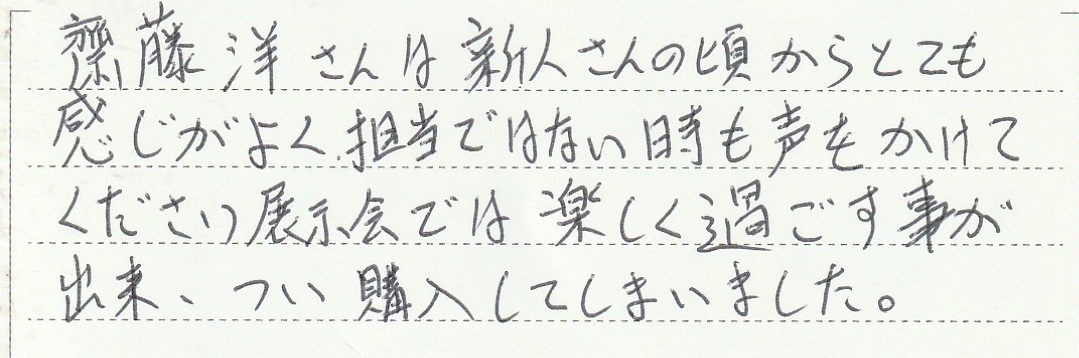 齋藤洋さんは新人さんの頃からとても
感じがよく、担当ではない時も声をかけて
ください展示会では楽しく過ごす事が
出来、つい購入してしまいました。